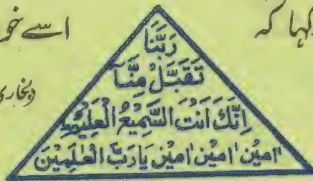 کہا کہ
اسے خو
(بخاری
رَبَّنَا
تَقَبَّلْ مِنَّا
اِنَّكَ اَنْتَ السَّمِيْعُ الْعَلِيْمُ
اٰمِيْن اٰمِيْن اٰمِيْن يَارَبَّ الْعٰلَمِيْنَ